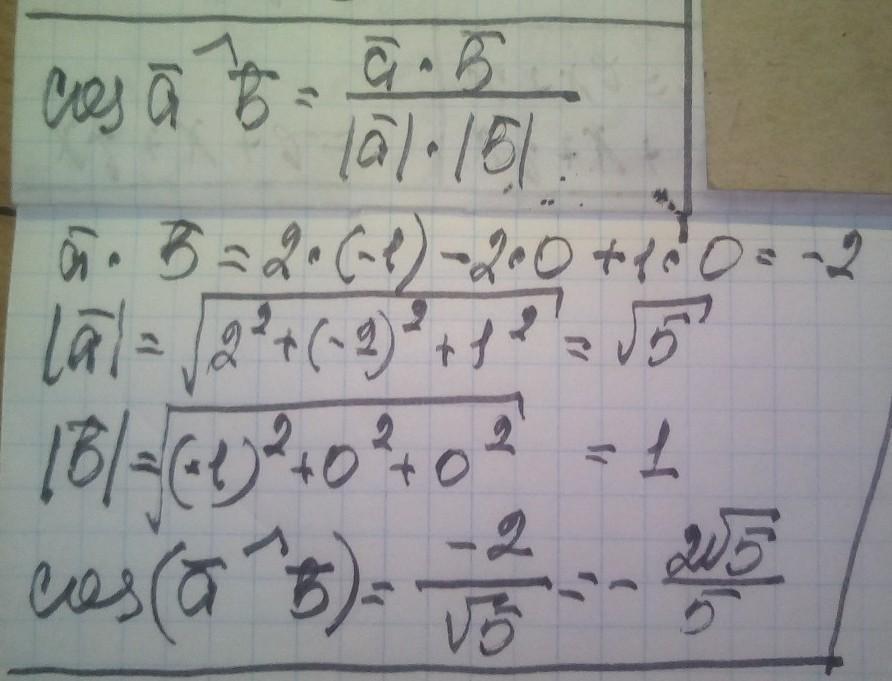 cos ā ^ b̄ = ā · b̄ / |ā| · |b̄|
ā · b̄ = 2 · (-1) - 2 · 0 + 1 · 0 = -2
|ā| = √(2² + (-2)² + 1²) = √5
|b̄| = √((-1)² + 0² + 0²) = 1
cos(ā ^ b̄) = -2/√5 = - 2√5/5